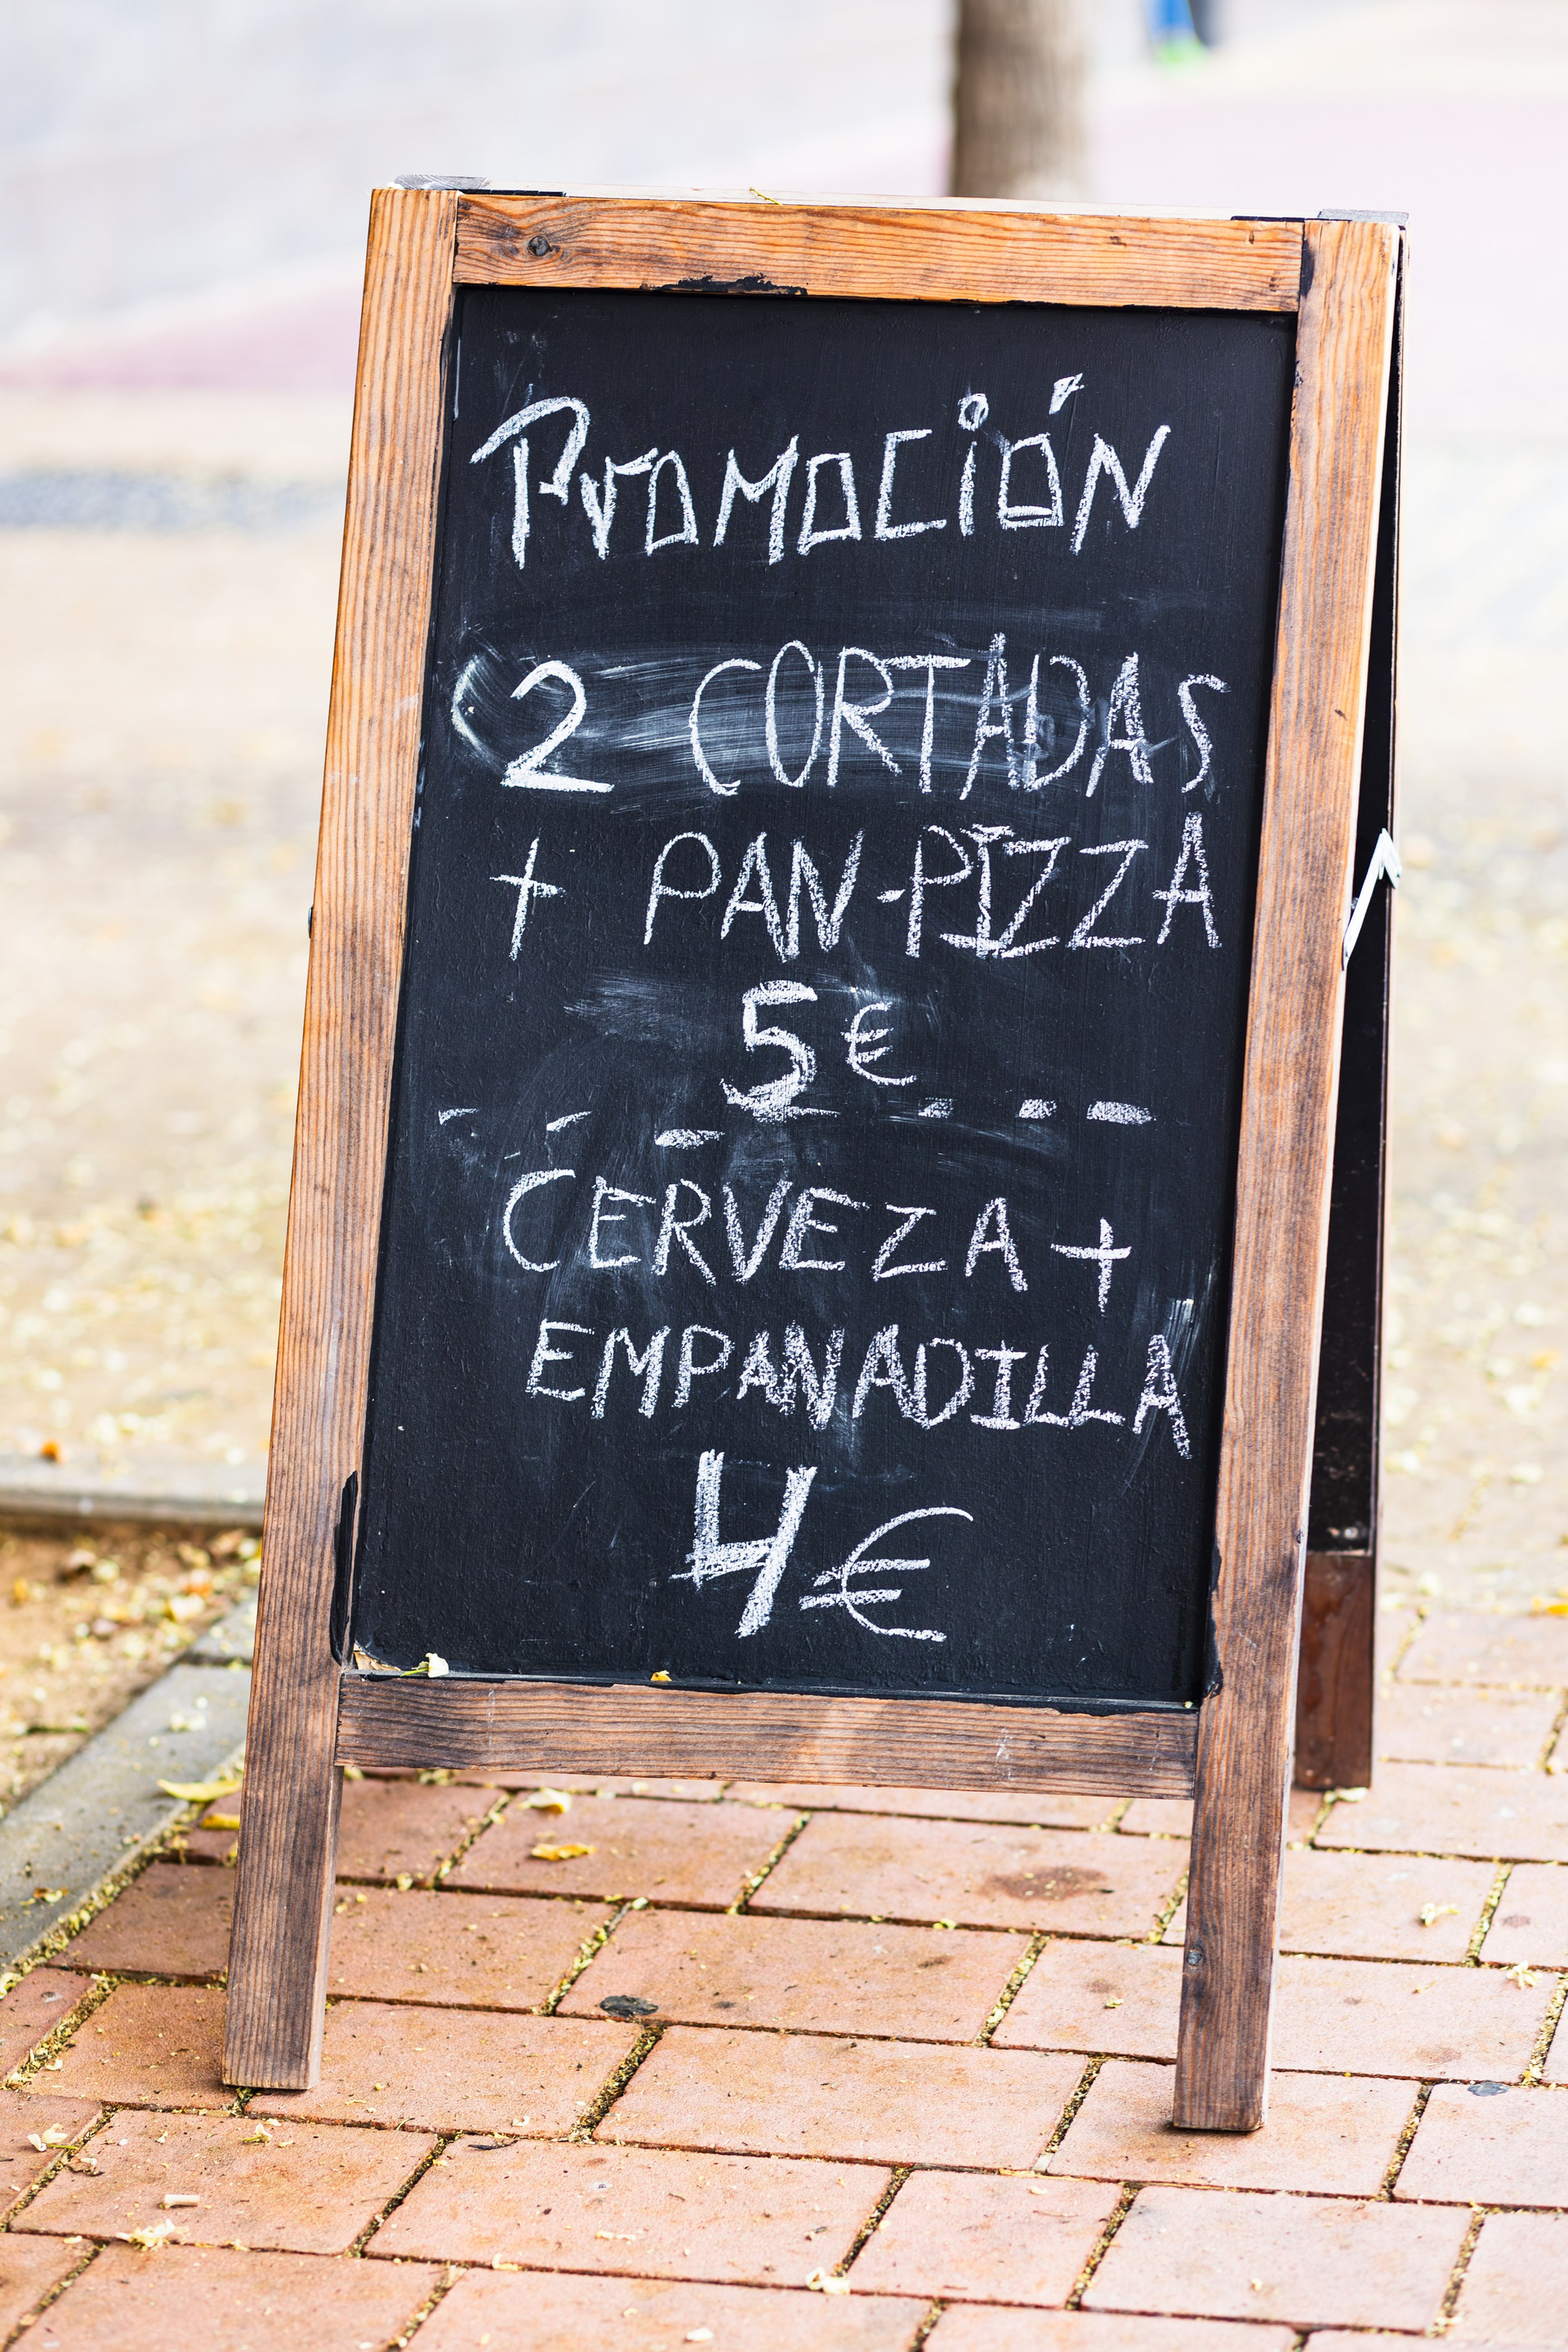 Promoción
2 CORTADAS
+ PAN-PIZZA
5€
CERVEZA +
EMPANADILLA
4€